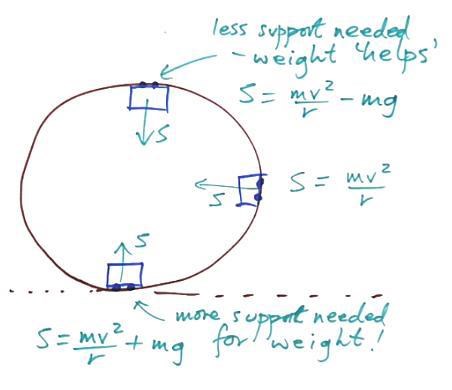 less support needed
- weight 'helps'
S = mv²/r - mg
S
S
S = mv²/r
S
more support needed
for weight!
S = mv²/r + mg